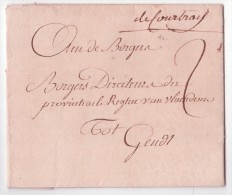 de Courtray
2
Aen de Borgers
Borgers Directeurs der
provintiale Regtien van Vlaenderen
Tot
Gendt